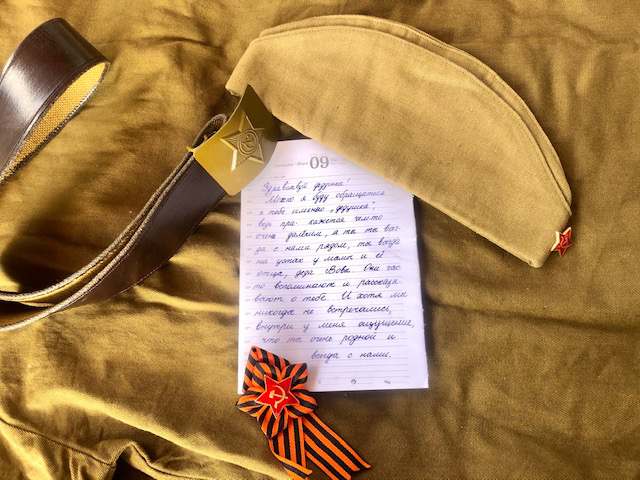 09
Здравствуй дедушка!
Можно я буду обращаться
к тебе именно „дедушка",
ведь пра- кажется чем-то
очень далёким, а ты ты всег-
да с нами рядом, ты всегда
на устах у мамы и её
отца, деда Вовы. Они час-
то вспоминают и рассказы-
вают о тебе. И хотя мы
никогда не встречались,
внутри у меня ощущение,
что ты очень родной и
всегда с нами.